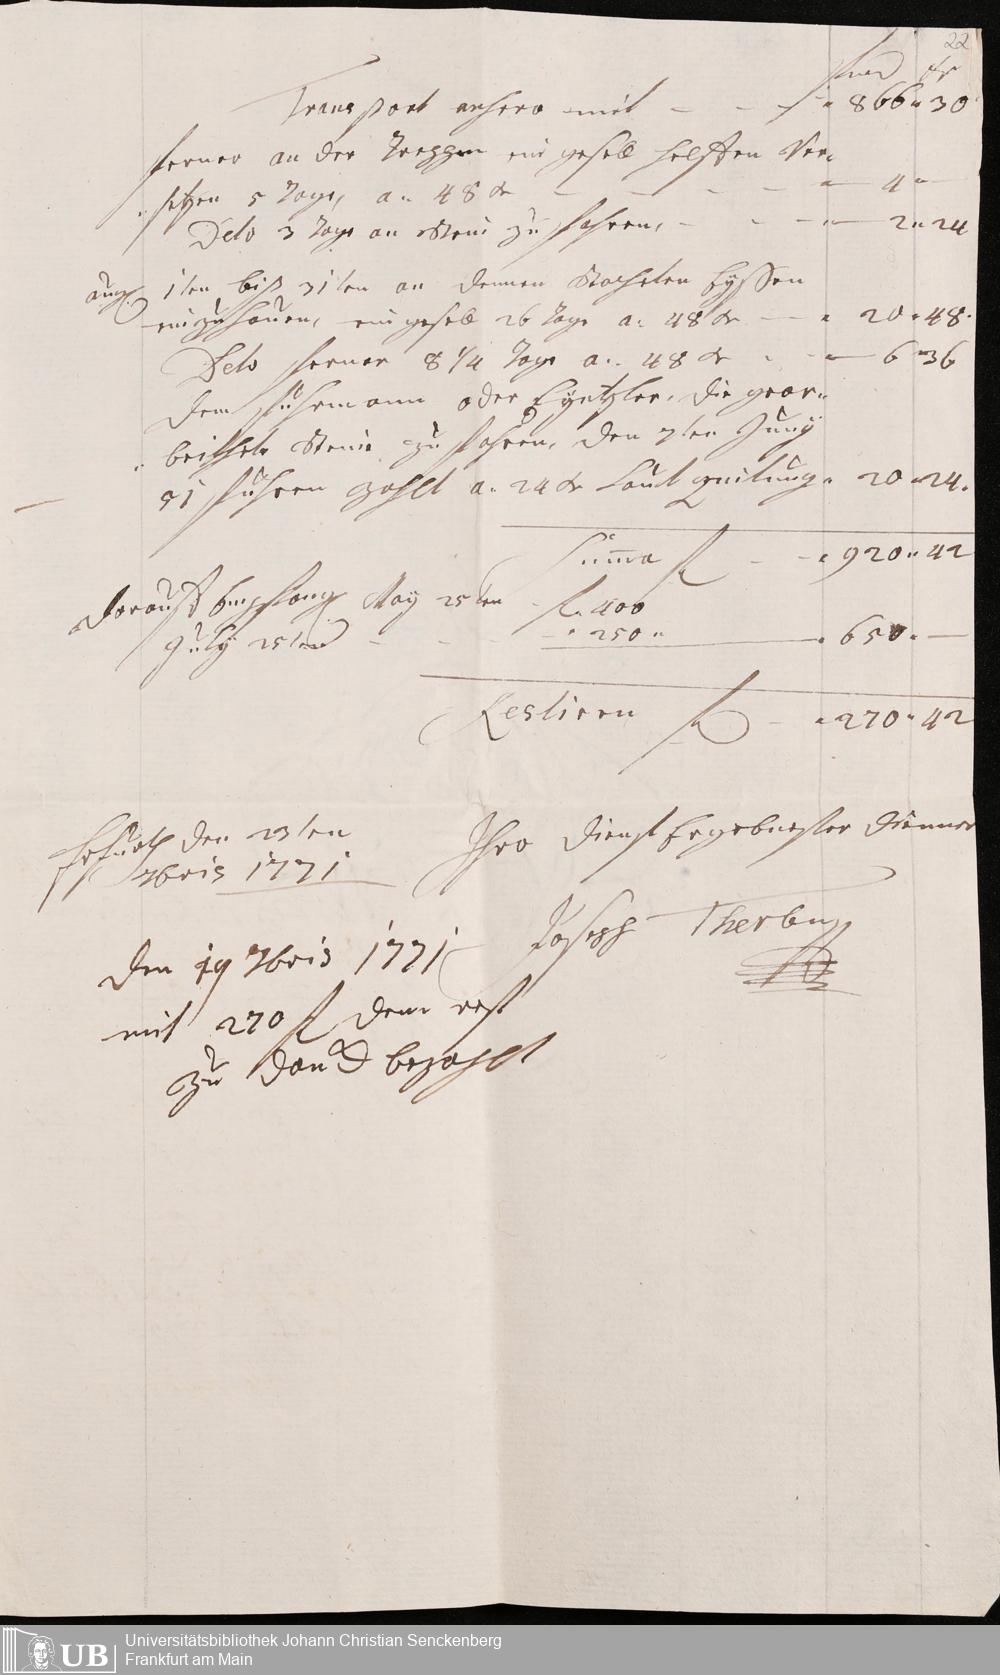 22
fl xr
Transport anhero mit - - - " 866 " 30
ferner an der Treppen ein gesell helffen Ver-
setzen 5 Tage, a " 48 xr - - - - " 4 " -
Deto 3 Tage an Stein zu fahren, - - - " 2 " 24
aug. 1ten biß 31ten an dennen Stacheten Eyssen
einzuhauen, ein gesell 26 Tage a: 48 xr - " 20 " 48.
Deto ferner 8 1/4 Tage a: 48 xr - - " 6 " 36
dem fuhrmann oder, die gear-
beithete Steine zu fahren, den 7ten Juny
51 fuhren zahlt a: 24 xr laut quitung " 20 " 24.
Summa fl - - " 920 " 42
darauff Empfang May 25ten - fl. 400
July 25ten - - - - " 250 " " 650 " -
Restiren fl - " 270 " 42
den 23ten
7bris 1771
Ihro dienst Ergebnester diener
Joseph
den 29 7bris 1771
mit 270 fl den rest
zu danck bezahlt
UB Universitätsbibliothek Johann Christian Senckenberg
Frankfurt am Main